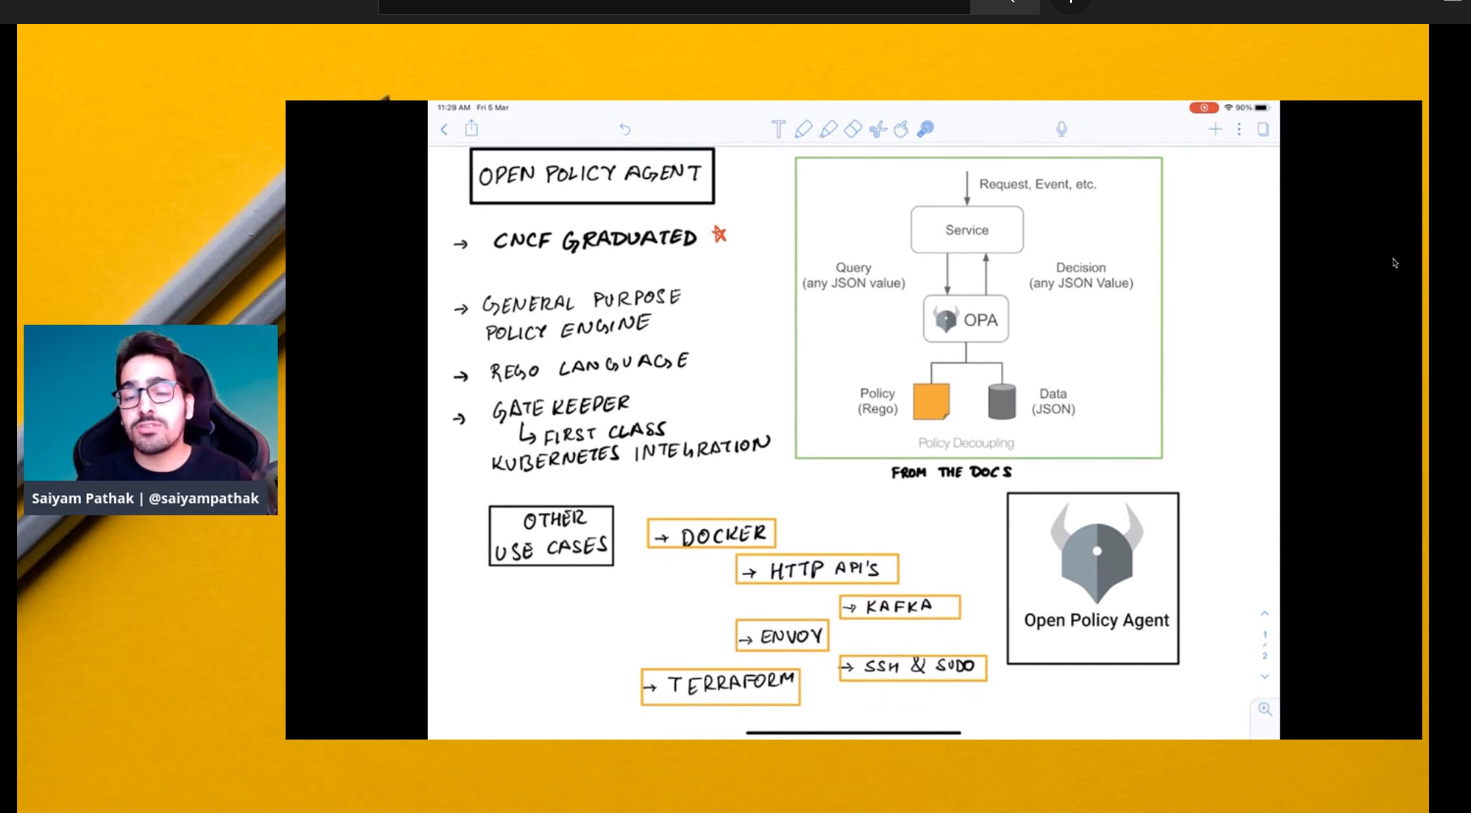 11:29 AM Fri 5 Mar
90%
OPEN POLICY AGENT
→ CNCF GRADUATED
→ GENERAL PURPOSE
POLICY ENGINE
→ REGO LANGUAGE
→ GATE KEEPER
↳ FIRST CLASS
KUBERNETES INTEGRATION
Request, Event, etc.
Service
Query
(any JSON value)
Decision
(any JSON Value)
OPA
Policy
(Rego)
Data
(JSON)
Policy Decoupling
FROM THE DOCS
OTHER
USE CASES
→ DOCKER
→ HTTP API'S
→ KAFKA
→ ENVOY
→ SSH & SUDO
→ TERRAFORM
Open Policy Agent
1
/
2
Saiyam Pathak | @saiyampathak